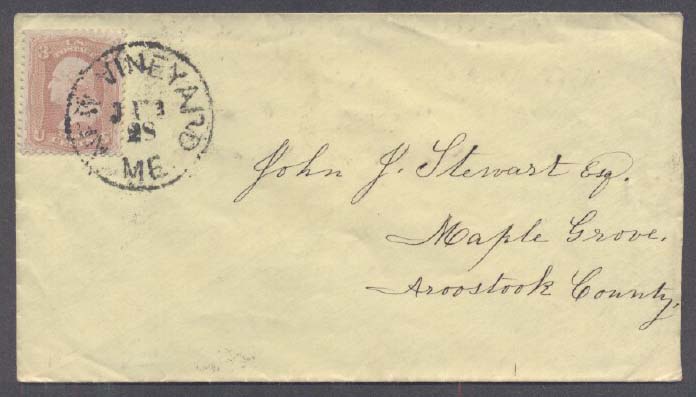 3
U
NEW VINEYARD
28
ME
John J. Stewart Esq.
Maple Grove.
Aroostook County,